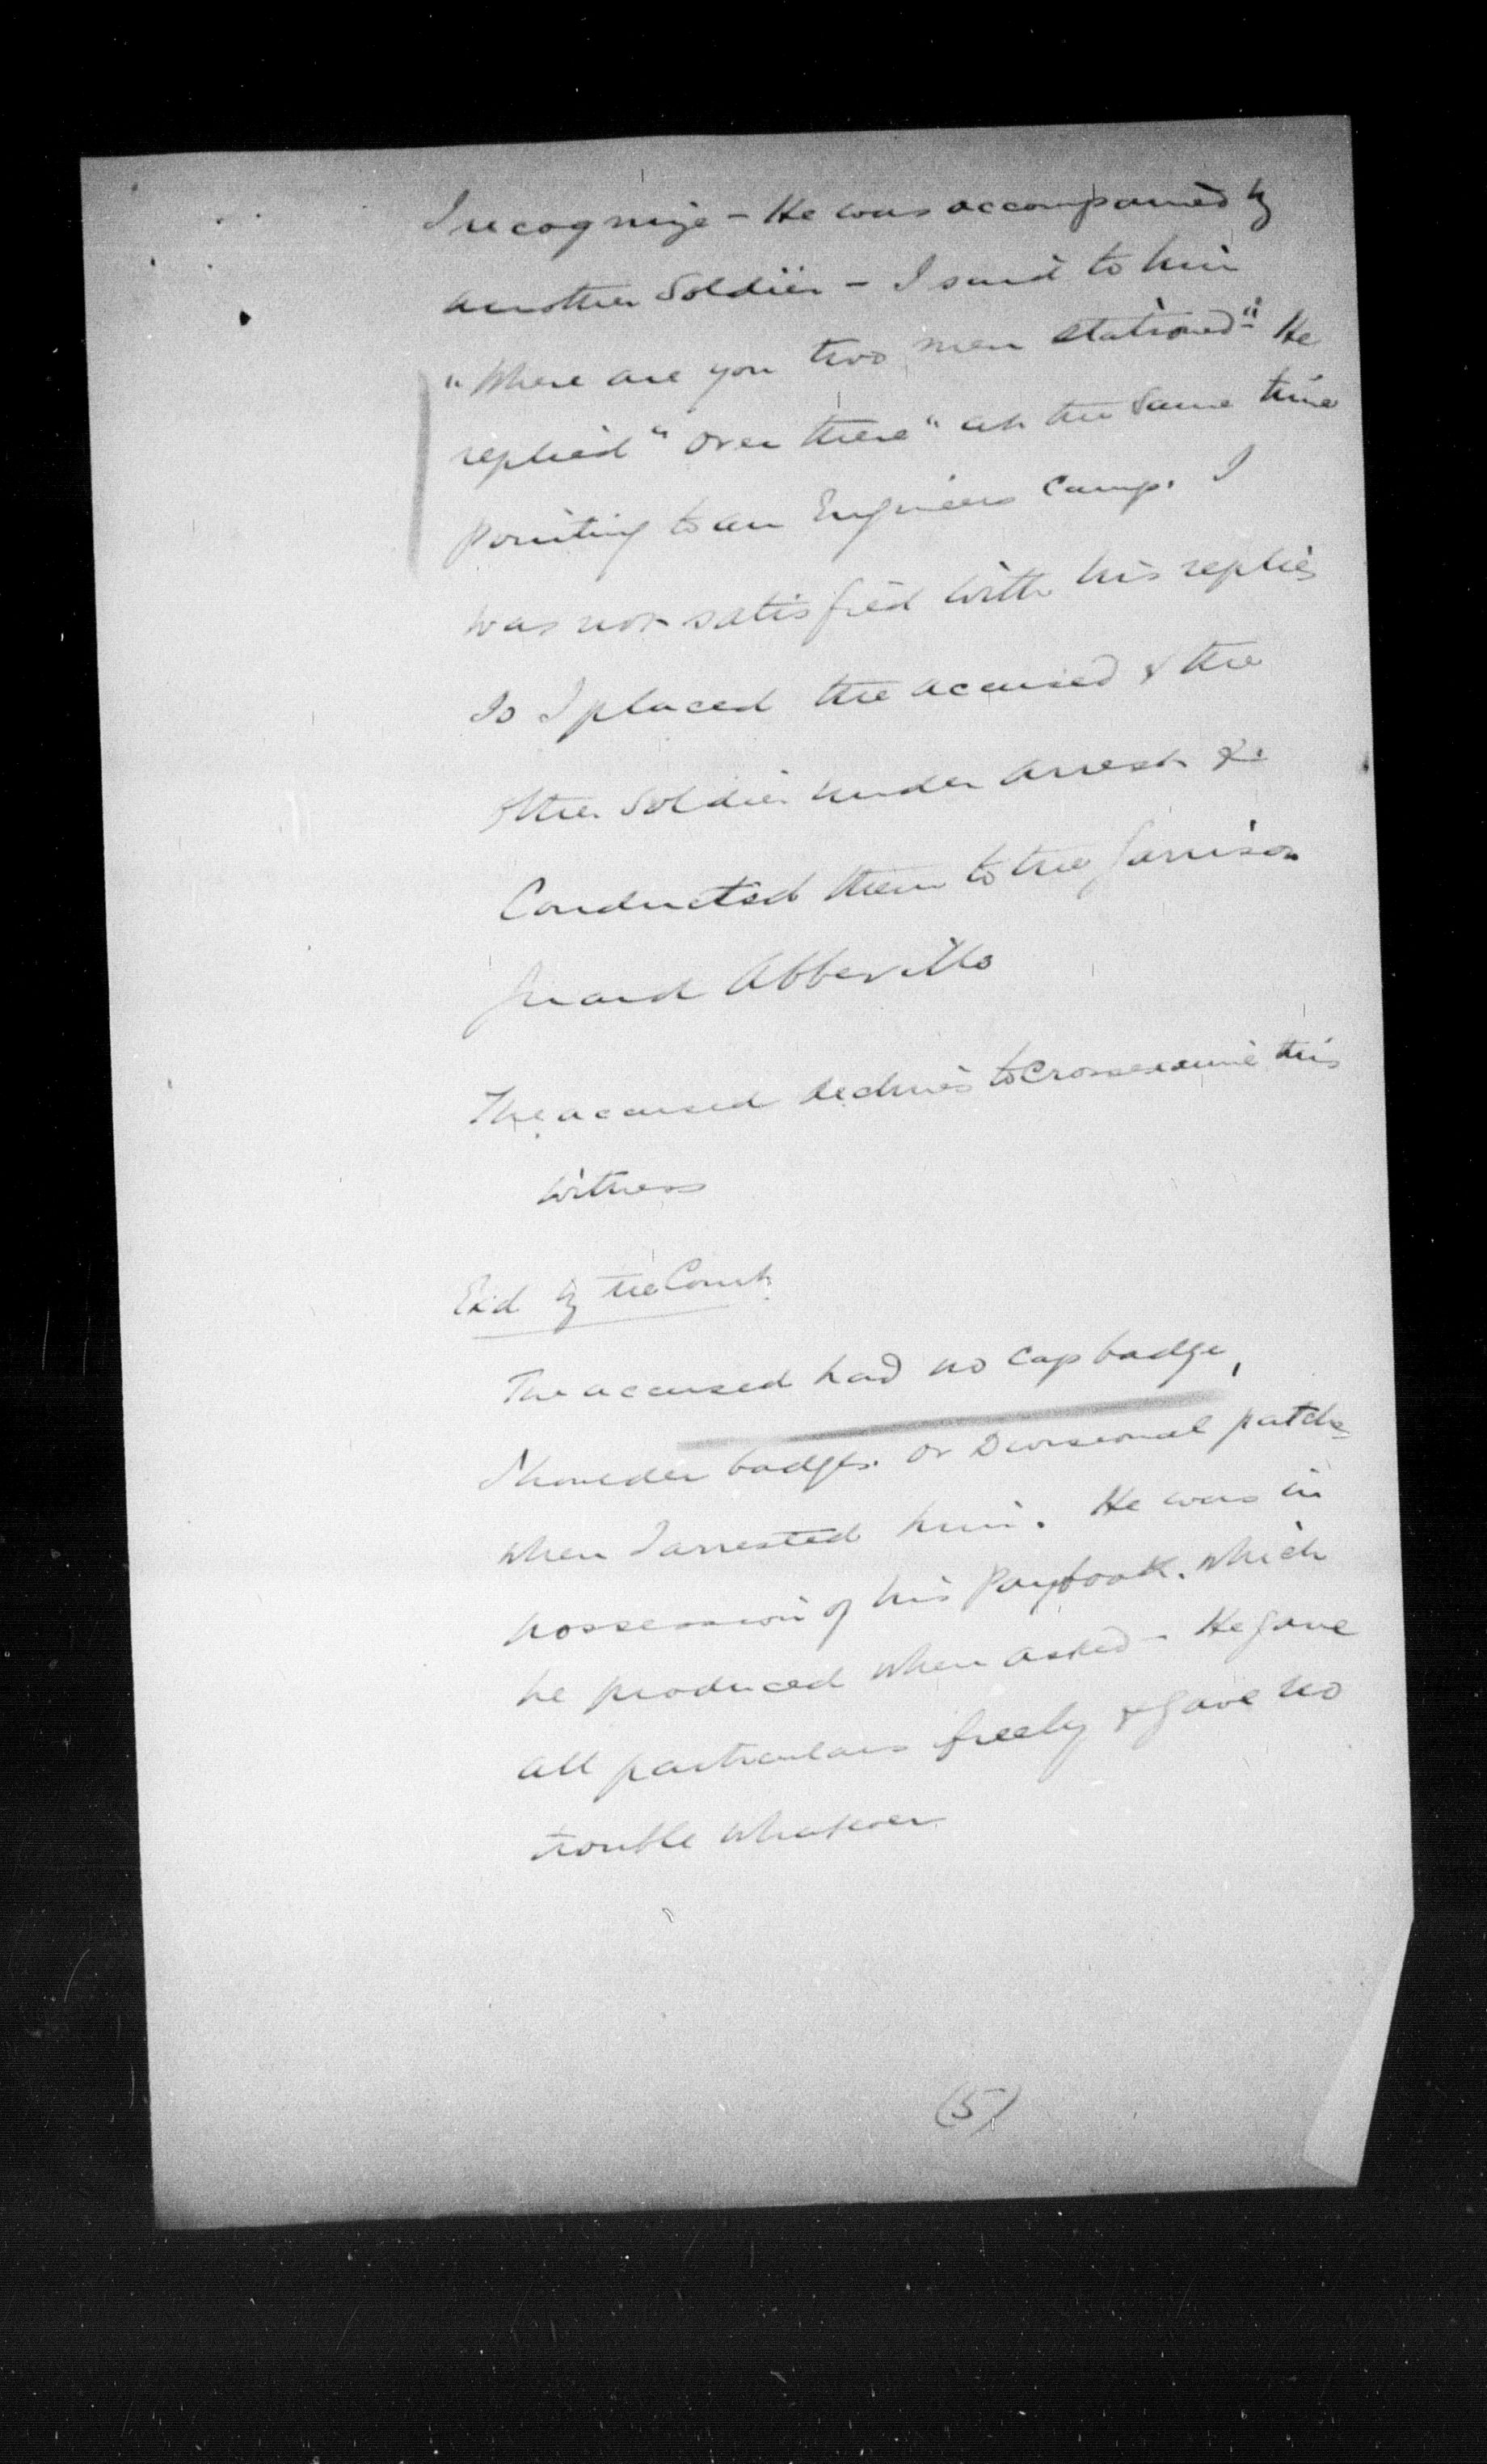 I recognize - He was accompanied by
another Soldier - I said to him
"Where are you two men stationed" He
replied "over there" at the same time
pointing to an Engineers Camp. I
was not satisfied with his replies
So I placed the accused & the
other Soldier under arrest &
Conducted them to the Garrison
Guard Abbeville
The accused declines to Crossexamine this
witness
Exd by the Court
The accused had no Cap badge,
Shoulder badges. or Divisional patches
when I arrested him. He was in
possession of his Paybook. which
he produced when asked - He gave
all particulars freely & gave no
trouble whatever
(5)